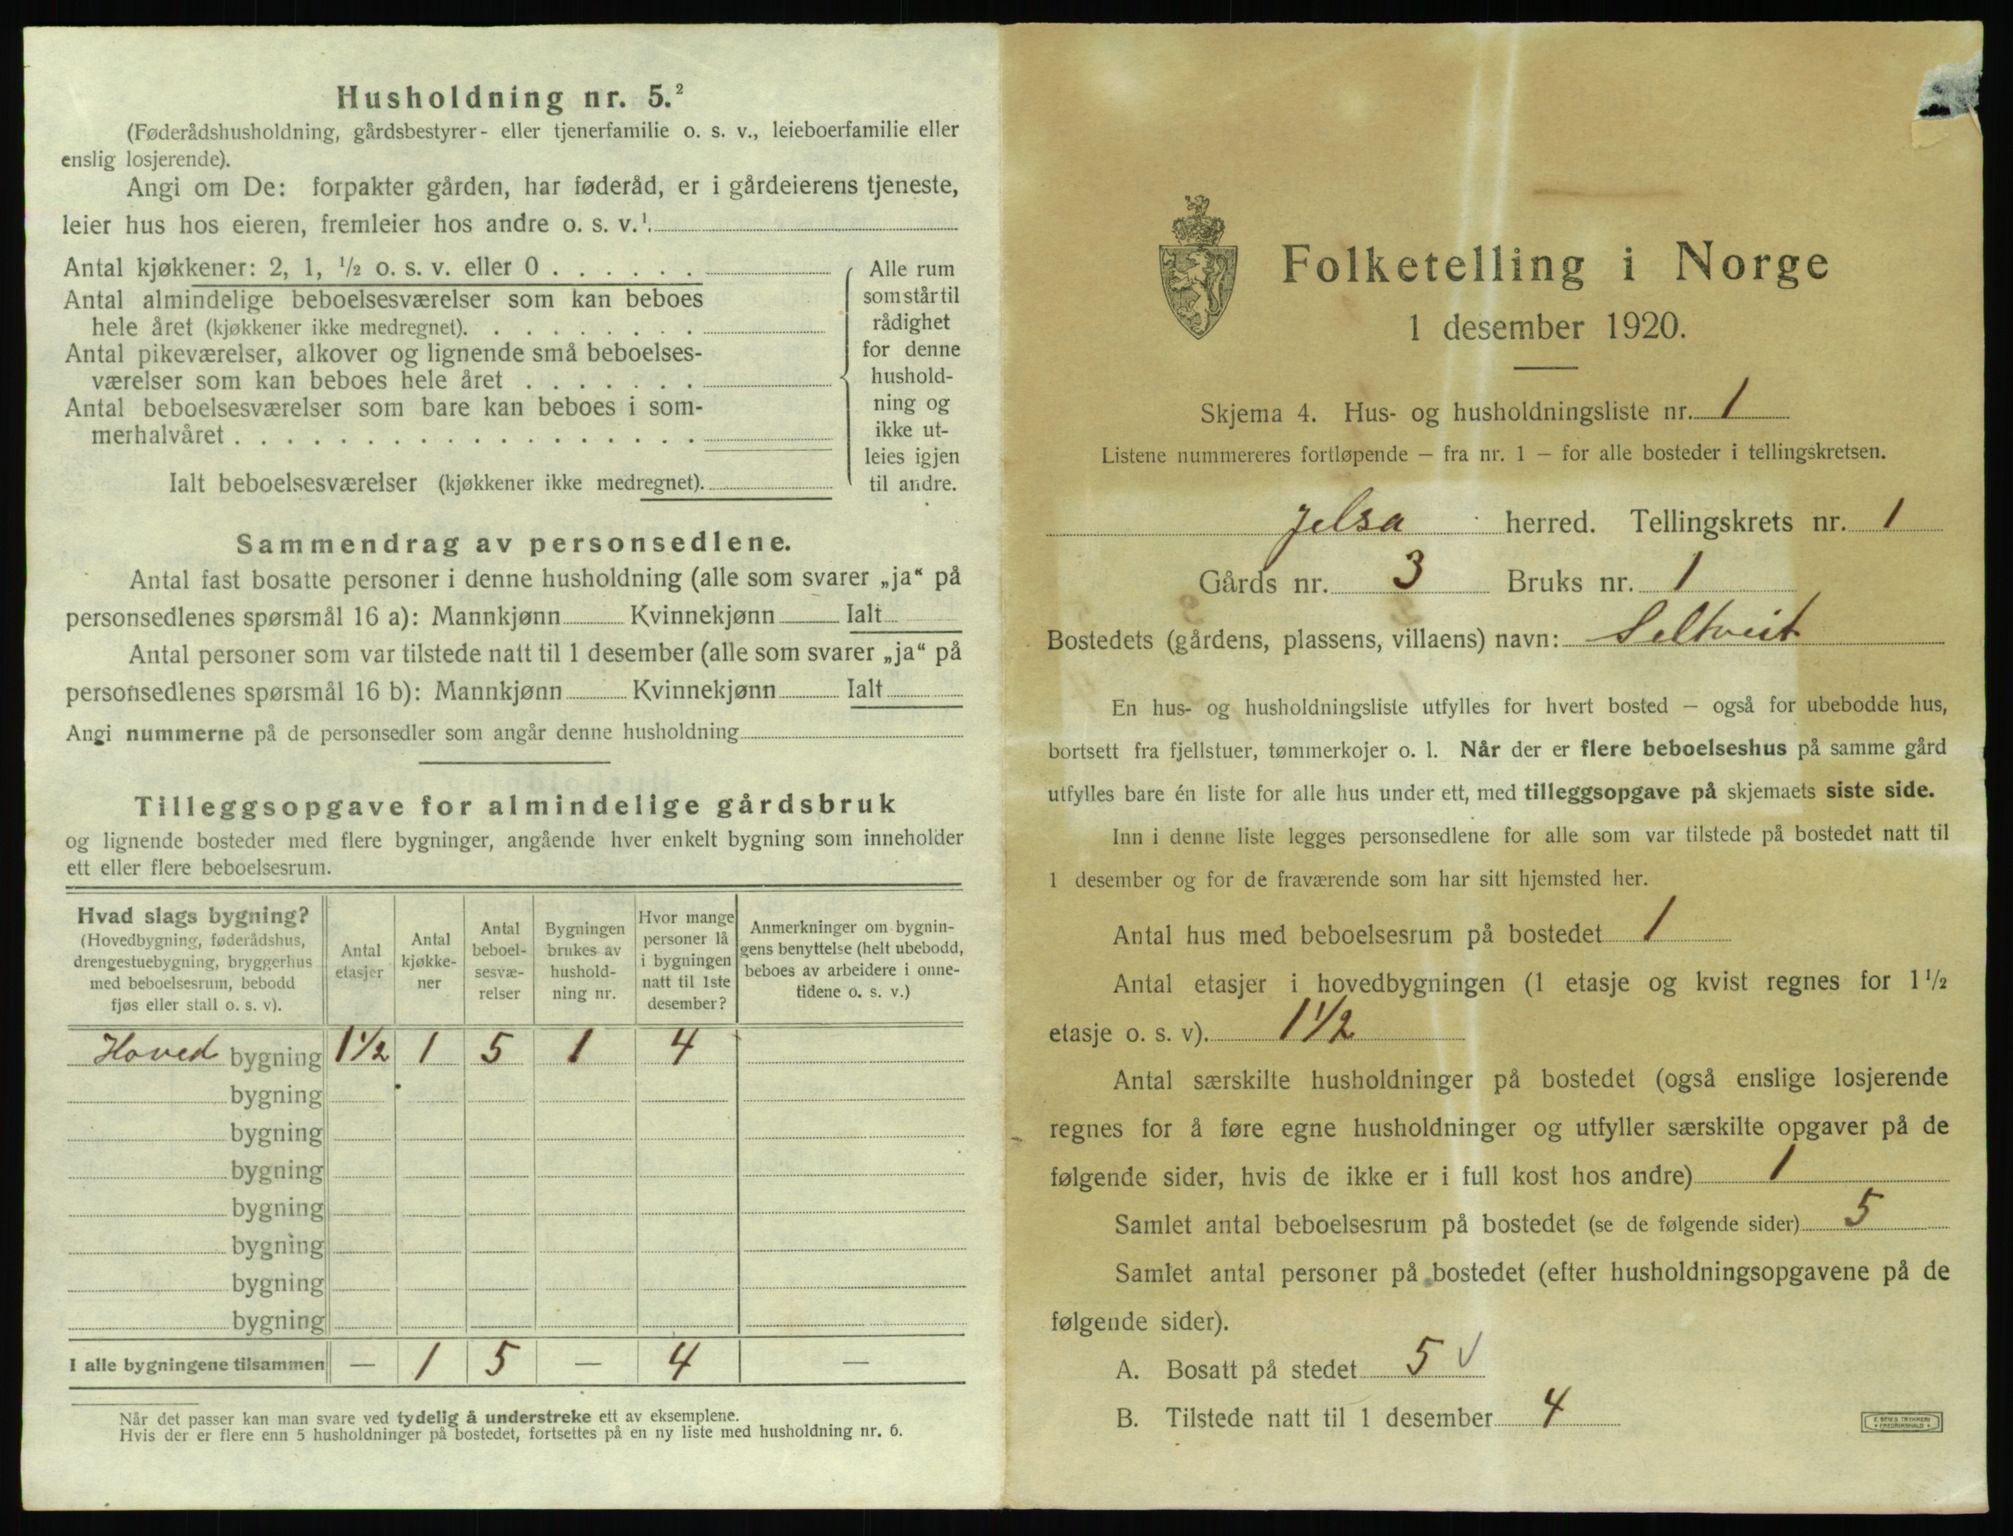 Husholdning nr. 5.²
(Føderådshusholdning, gårdsbestyrer- eller tjenerfamilie o. s. v., leieboerfamilie eller
enslig losjerende).
Angi om De: forpakter gården, har føderåd, er i gårdeierens tjeneste,
leier hus hos eieren, fremleier hos andre o. s. v.¹.
Antal kjøkkener: 2, 1, ½ o. s. v. eller 0 . . . . . .
Antal almindelige beboelsesværelser som kan beboes
hele året (kjøkkener ikke medregnet). . . . . . . . .
Antal pikeværelser, alkover og lignende små beboelses-
værelser som kan beboes hele året . . . . . . .
Antal beboelsesværelser som bare kan beboes i som-
merhalvåret . . . . . . . . . . . . . . . . . .
Ialt beboelsesværelser (kjøkkener ikke medregnet).
Alle rum
som står til
rådighet
for denne
hushold-
ning og
ikke ut-
leies igjen
til andre.
Sammendrag av personsedlene.
Antal fast bosatte personer i denne husholdning (alle som svarer „ja“ på
personsedlenes spørsmål 16 a): Mannkjønn Kvinnekjønn Ialt
Antal personer som var tilstede natt til 1 desember (alle som svarer „ja“ på
personsedlenes spørsmål 16 b): Mannkjønn Kvinnekjønn Ialt
Angi nummerne på de personsedler som angår denne husholdning
Tilleggsopgave for almindelige gårdsbruk
og lignende bosteder med flere bygninger, angående hver enkelt bygning som inneholder
ett eller flere beboelsesrum.
Hvad slags bygning?
(Hovedbygning, føderådshus,
drengestuebygning, bryggerhus
med beboelsesrum, bebodd
fjøs eller stall o. s. v).
Antal
etasjer
Antal
kjøkke-
ner
Antal
beboel-
sesvæ-
relser
Bygningen
brukes av
hushold-
ning nr.
Hvor mange
personer lå
i bygningen
natt til 1ste
desember?
Anmerkninger om bygnin-
gens benyttelse (helt ubebodd,
beboes av arbeidere i onne-
tidene o. s. v.)
Hoved bygning 1½ 1 5 1 4
bygning
bygning
bygning
bygning
bygning
bygning
bygning
I alle bygningene tilsammen — 1 5 — 4 —
Når det passer kan man svare ved tydelig å understreke ett av eksemplene.
Hvis der er flere enn 5 husholdninger på bostedet, fortsettes på en ny liste med husholdning nr. 6.
Folketelling i Norge
1 desember 1920.
Skjema 4. Hus- og husholdningsliste nr. 1
Listene nummereres fortløpende – fra nr. 1 – for alle bosteder i tellingskretsen.
Jelsa herred. Tellingskrets nr. 1
Gårds nr. 3 Bruks nr. 1
Bostedets (gårdens, plassens, villaens) navn: Seltveit
En hus- og husholdningsliste utfylles for hvert bosted – også for ubebodde hus,
bortsett fra fjellstuer, tømmerkojer o. l. Når der er flere beboelseshus på samme gård
utfylles bare én liste for alle hus under ett, med tilleggsopgave på skjemaets siste side.
Inn i denne liste legges personsedlene for alle som var tilstede på bostedet natt til
1 desember og for de fraværende som har sitt hjemsted her.
Antal hus med beboelsesrum på bostedet 1
Antal etasjer i hovedbygningen (1 etasje og kvist regnes for 1½
etasje o. s. v). 1½
Antal særskilte husholdninger på bostedet (også enslige losjerende
regnes for å føre egne husholdninger og utfyller særskilte opgaver på de
følgende sider, hvis de ikke er i full kost hos andre) 1
Samlet antal beboelsesrum på bostedet (se de følgende sider) 5
Samlet antal personer på bostedet (efter husholdningsopgavene på de
følgende sider).
A. Bosatt på stedet 5 ✓
B. Tilstede natt til 1 desember 4